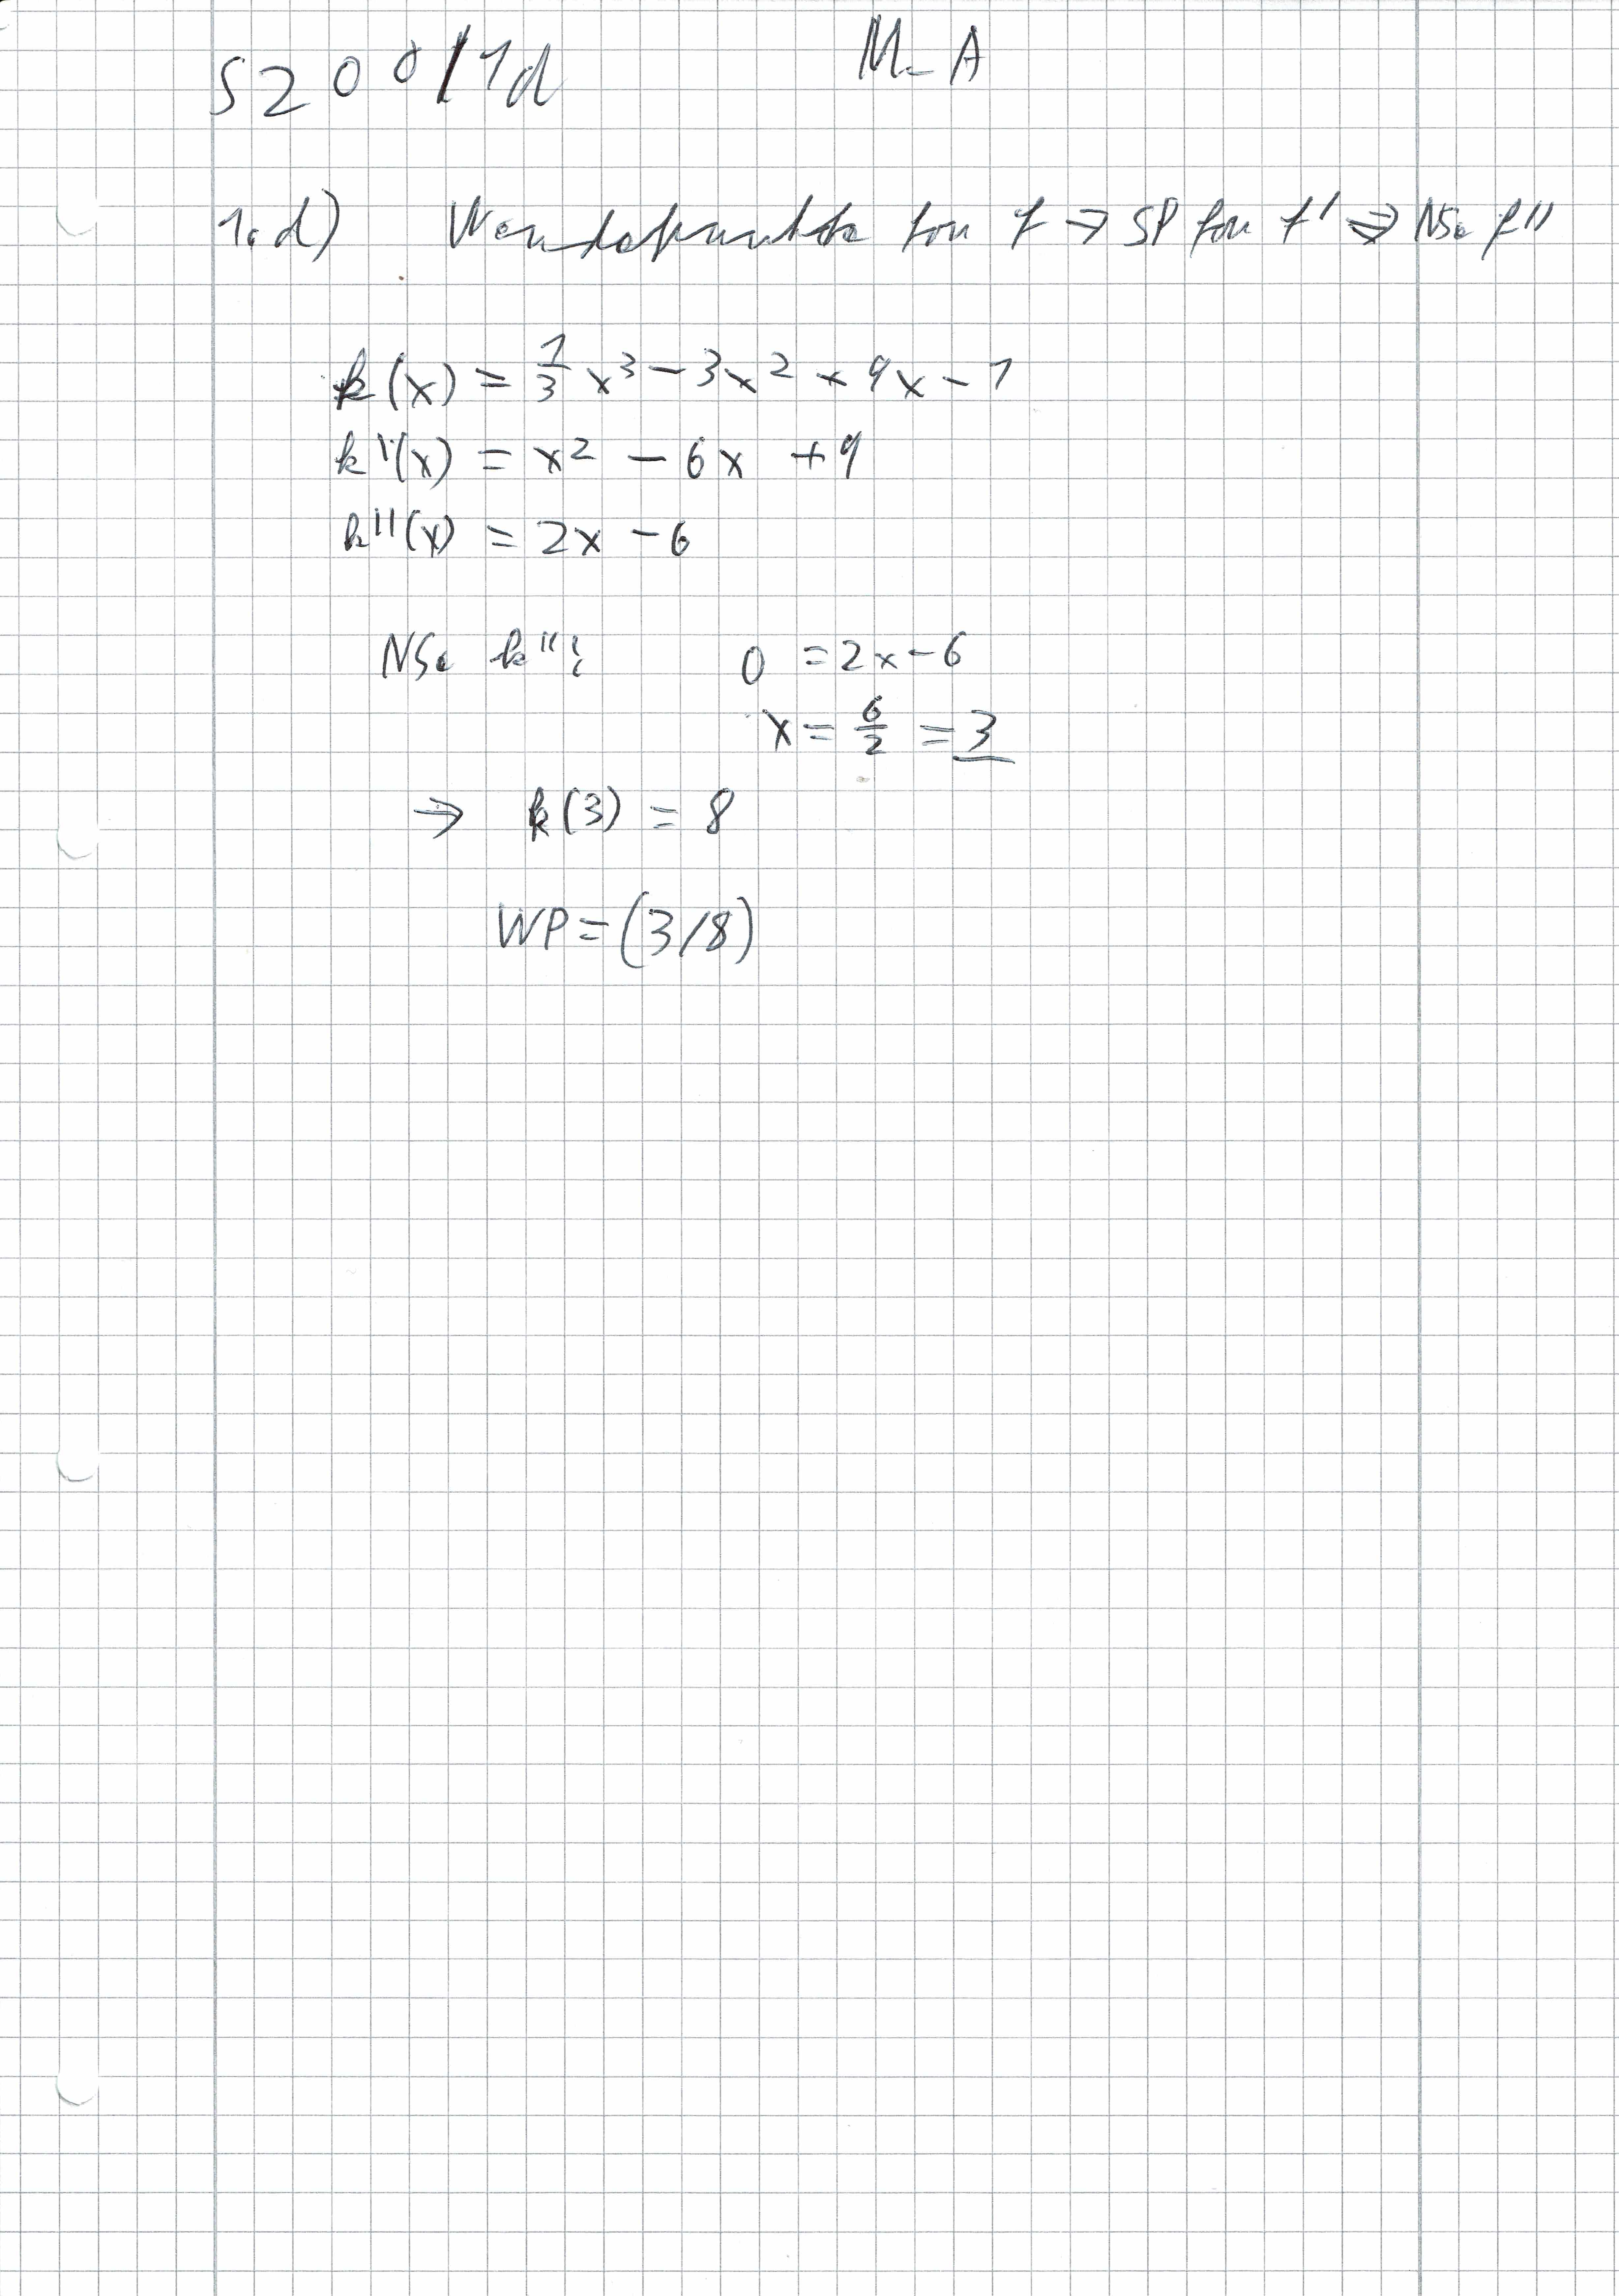 S200/1d M-A
1. d) Wendepunkte von f ⇒ SP von f' ⇒ NS. f''
k(x) = 1/3 x³ - 3x² + 9x - 1
k'(x) = x² - 6x + 9
k''(x) = 2x - 6
NS. k'': 0 = 2x - 6
x = 6/2 = 3
⇒ k(3) = 8
WP = (3/8)